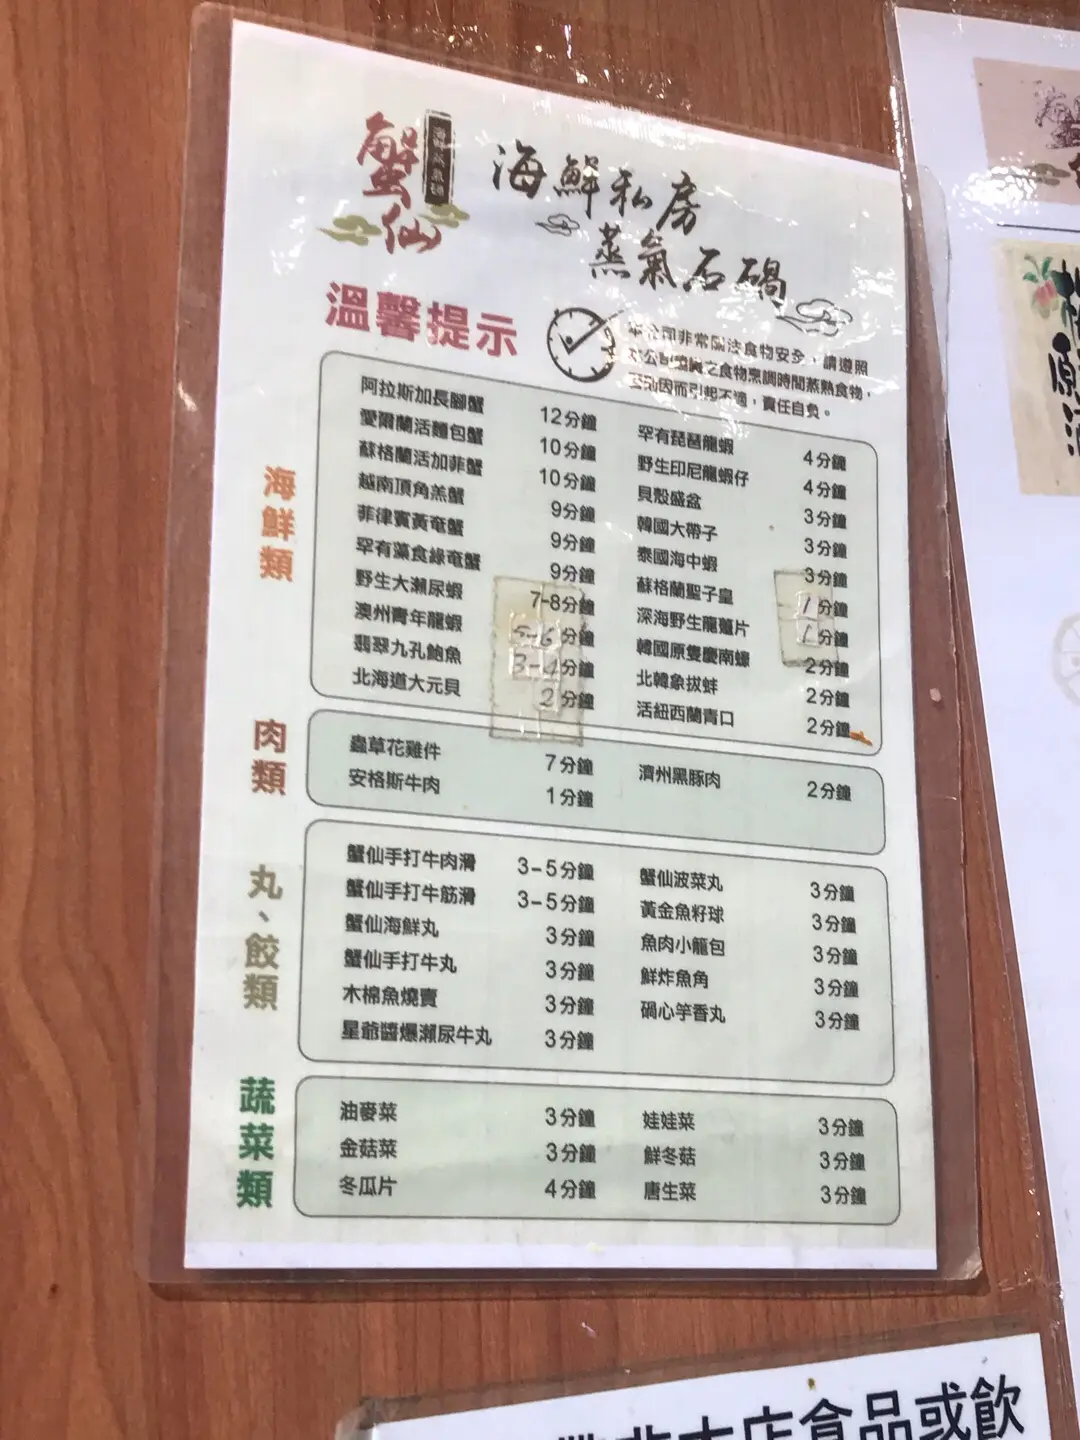 蟹仙
海鮮私房
蒸氣石鍋
溫馨提示
本公司非常關注食物安全，請遵照
本公司建議之食物烹調時間蒸熟食物，
否則因而引起不適，責任自負。
海鮮類
阿拉斯加長腳蟹 12分鐘
愛爾蘭活麵包蟹 10分鐘
蘇格蘭活加菲蟹 10分鐘
越南頂角羔蟹 9分鐘
菲律賓黃奄蟹 9分鐘
罕有藻食綠奄蟹 9分鐘
野生大瀨尿蝦 7-8分鐘
澳州青年龍蝦 5-6分鐘
翡翠九孔鮑魚 3-4分鐘
北海道大元貝 2分鐘
罕有琵琶龍蝦 4分鐘
野生印尼龍蝦仔 4分鐘
貝殼盛盆 3分鐘
韓國大帶子 3分鐘
泰國海中蝦 3分鐘
蘇格蘭聖子皇 1分鐘
深海野生龍躉片 1分鐘
韓國原隻慶南蠔 2分鐘
北韓象拔蚌 2分鐘
活紐西蘭青口 2分鐘
肉類
蟲草花雞件 7分鐘
安格斯牛肉 1分鐘
濟州黑豚肉 2分鐘
丸、餃類
蟹仙手打牛肉滑 3-5分鐘
蟹仙手打牛筋滑 3-5分鐘
蟹仙海鮮丸 3分鐘
蟹仙手打牛丸 3分鐘
木棉魚燒賣 3分鐘
星爺醬爆瀨尿牛丸 3分鐘
蟹仙波菜丸 3分鐘
黃金魚籽球 3分鐘
魚肉小籠包 3分鐘
鮮炸魚角 3分鐘
鍋心芋香丸 3分鐘
蔬菜類
油麥菜 3分鐘
金菇菜 3分鐘
冬瓜片 4分鐘
娃娃菜 3分鐘
鮮冬菇 3分鐘
唐生菜 3分鐘
原
非本店食品或飲